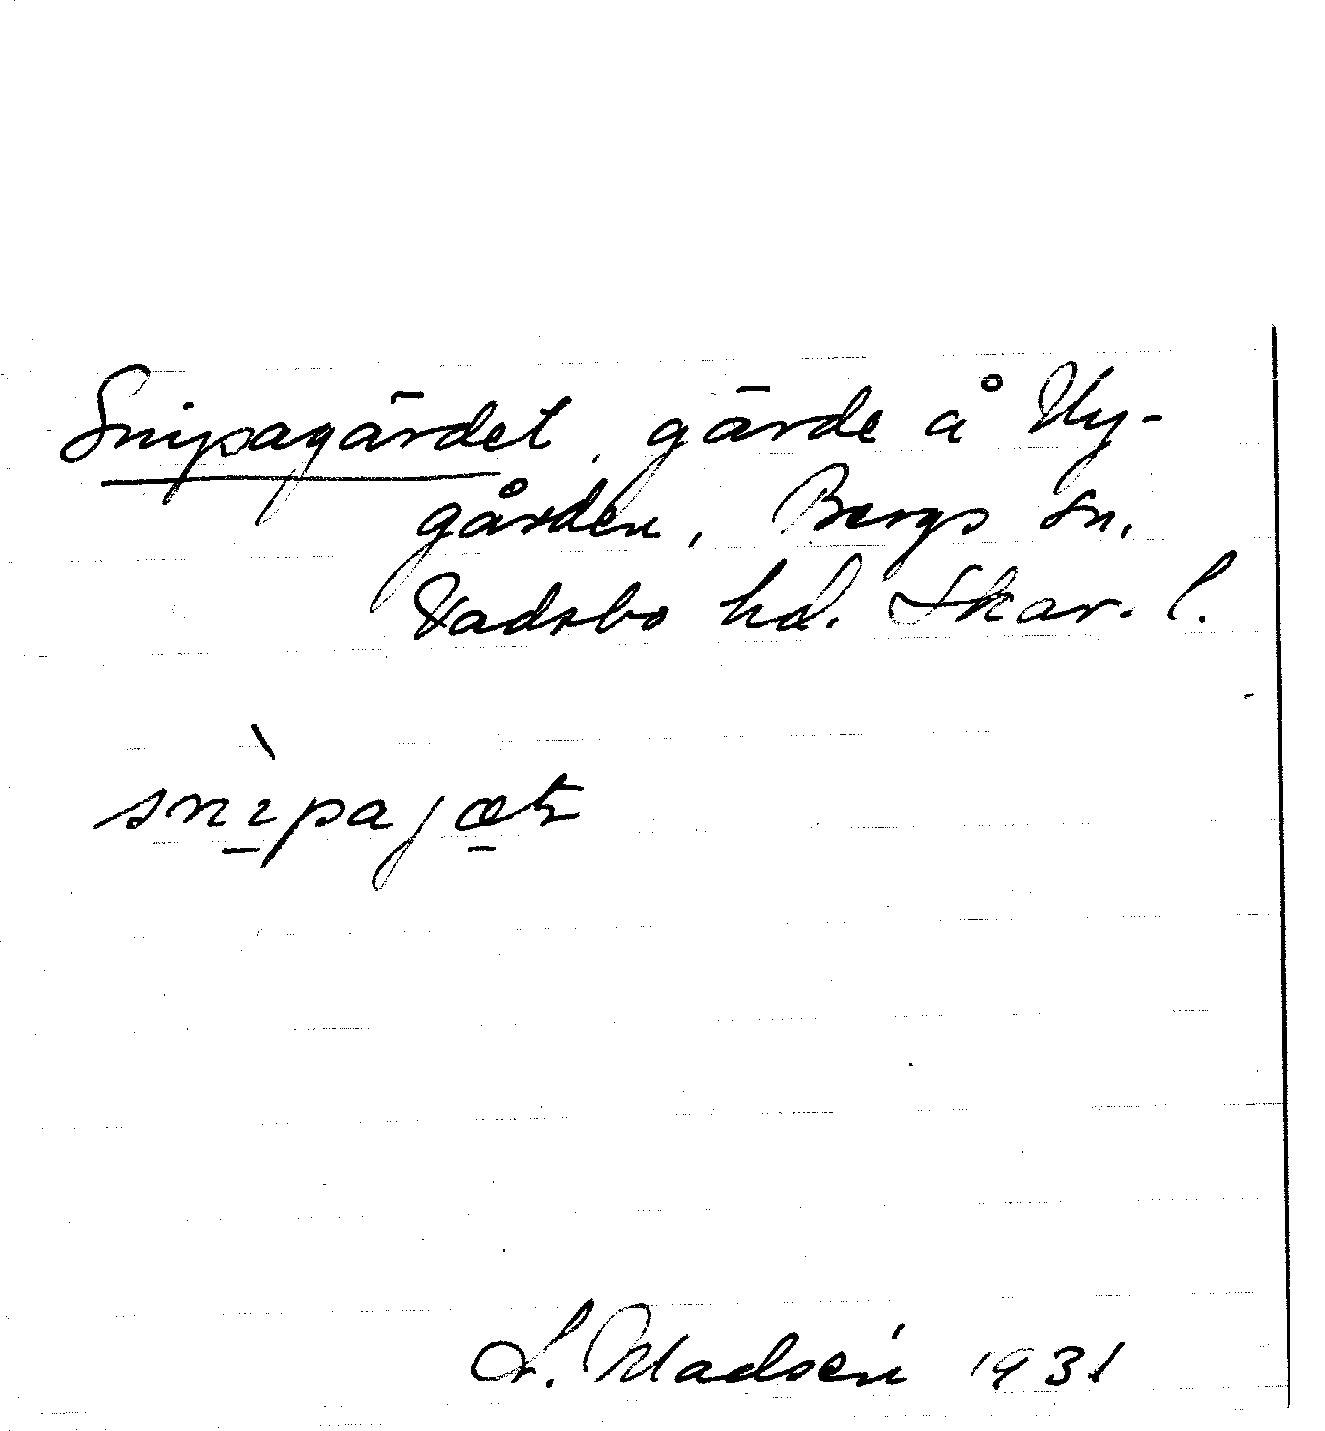 Snipagärdet, gärde å Ny-
gården, Bergs sn.
Vadsbo hd. Skar. l.
snìpajæt
L. Madsén 1931